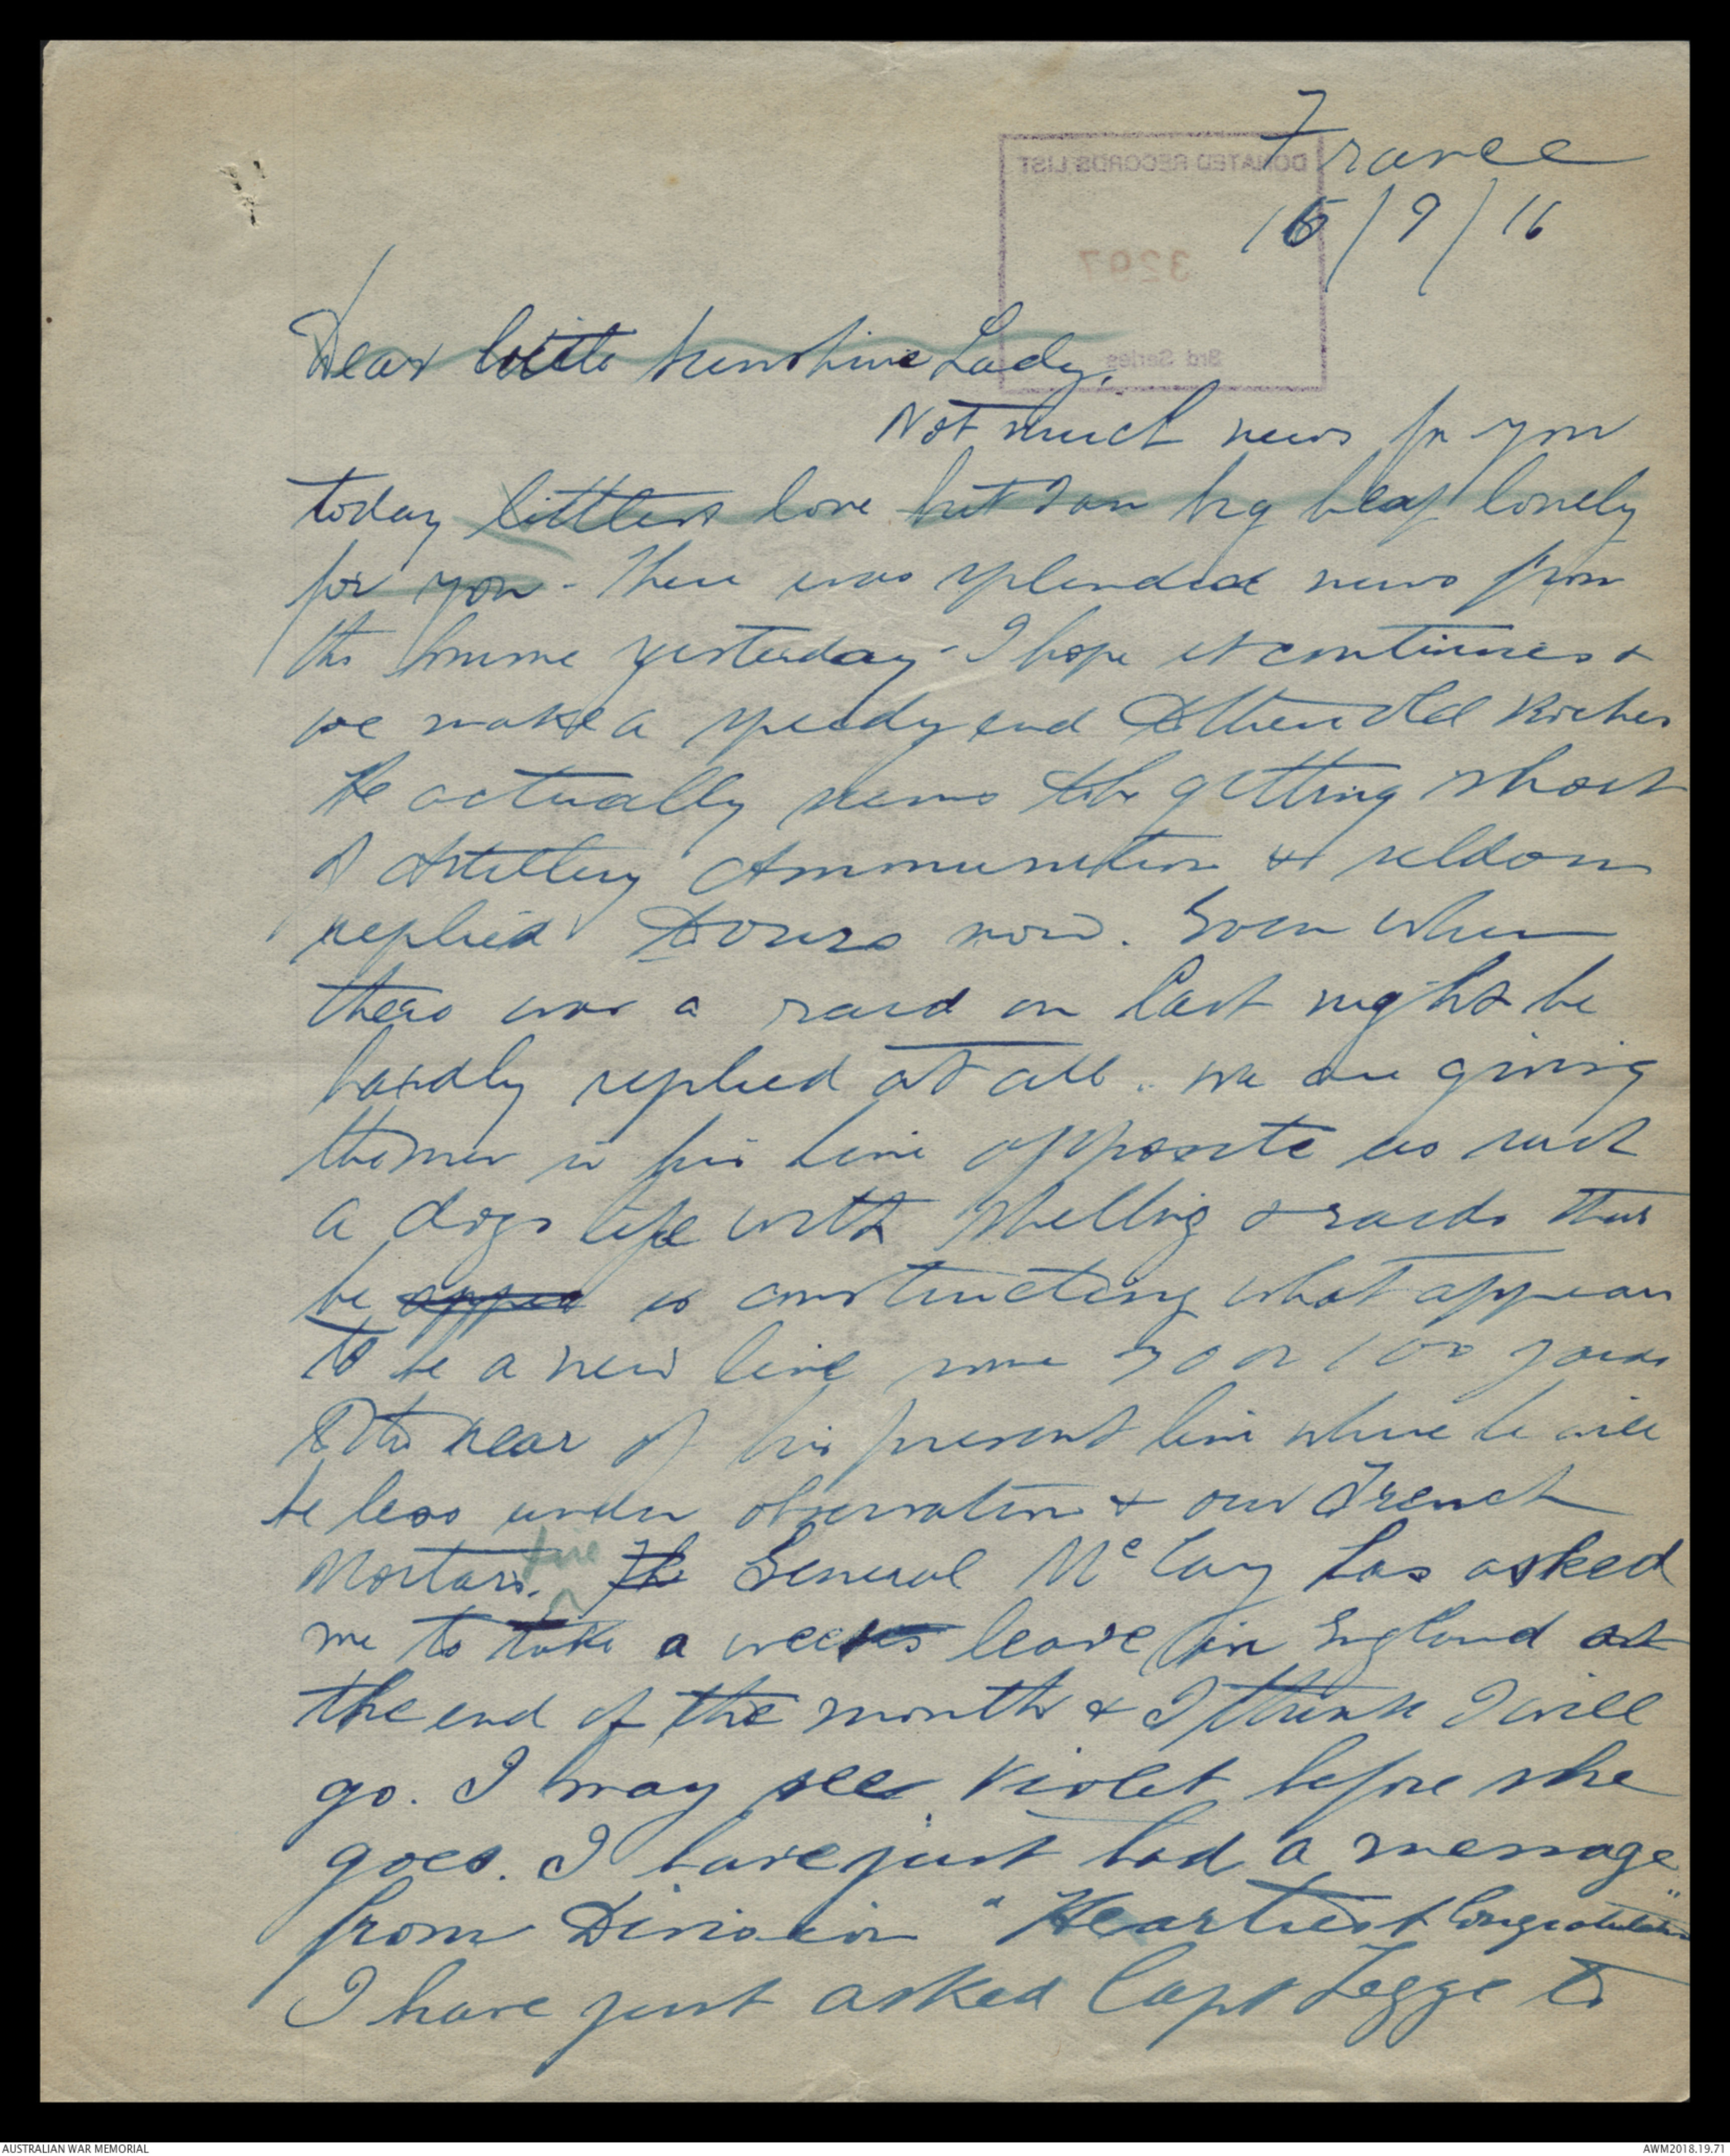 France
16/9/16
DONATED RECORDS LIST
3207
3rd Series
Dear little Sunshine Lady,
Not much news for you
today littlest love but I am big heap lonely
for you - There was splendid news from
the Somme yesterday - I hope it continues &
we make a speedy end to then old Riches
He actually seems to be getting short
of Artillery Ammunition & seldom
replied to ours now. Even when
there was a raid on last night he
hardly replied at all. We are giving
the man in his line opposite us such
a dogs life with shelling & raids that
he is constructing what appears
to be a new line some 70 or 100 yards
to the rear of his present line where he will
be less under observation & our Trench
Mortars fire. The General McCay has asked
me to take a weeks leave in England at
the end of the month & I think I will
go. I may see Violet before she
goes. I have just had a message
from Division "Heartiest Congratulations"
I have just asked Capt Legge to
AUSTRALIAN WAR MEMORIAL
AWM2018.19.71